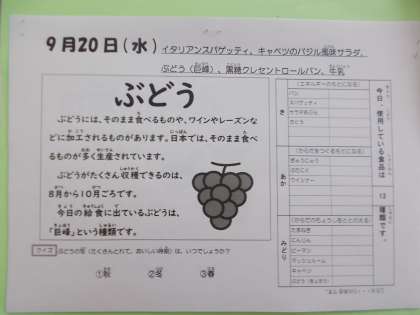 9月20日(水) イタリアンスパゲッティ、キャベツのバジル風味サラダ、
ぶどう(巨峰)、黒糖クレセントロールパン、牛乳
ぶどう
ぶどうには、そのまま食べるものや、ワインやレーズンな
どに加工されるものがあります。日本では、そのまま食べ
るものが多く生産されています。
ぶどうがたくさん収穫できるのは、
8月から10月ごろです。
今日の給食に出ているぶどうは、
「巨峰」という種類です。
クイズ ぶどうの旬(たくさんとれて、おいしい時期)は、いつでしょうか?
①秋 ②冬 ③春
今日、使用している食品は
12
種類です。
き
(エネルギーのもとになる)
パン
スパゲッティ
サラダあぶら
さとう
あか
(からだをつくるもとになる)
ぎゅうにゅう
ウインナー
みどり
(からだのちょうしをととのえる)
たまねぎ
にんじん
ピーマン
マッシュルーム
キャベツ
ぶどう(きょほう)